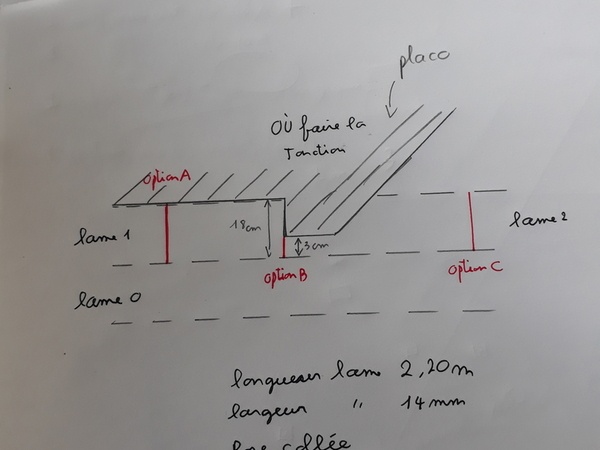 placo
OÙ faire la
Jonction
option A
lame 1
18cm
3cm
lame 2
option B
option C
lame 0
longueur lame 2,20m
largeur " 14 mm
collée